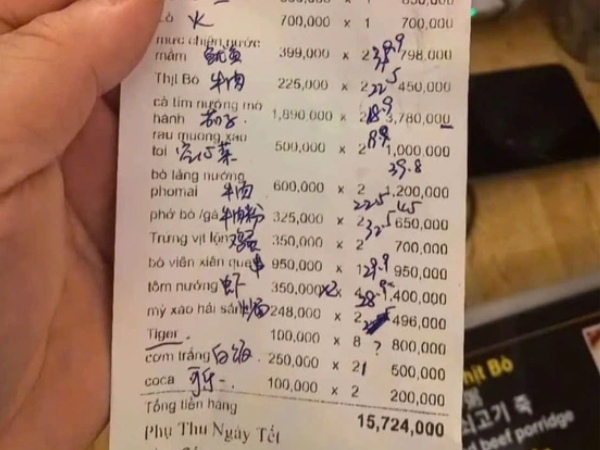 火 700,000 x 1 700,000
mực chiên nước
mắm 鱿鱼 399,000 x 2 39.9 798,000
Thịt Bò 牛肉 225,000 x 2 22.5 450,000
cà tím nướng mỡ
hành 茄子 1,890,000 x 2 18.9 3,780,000
rau muống xào
tỏi 空心菜 500,000 x 2 1,000,000
39.8
bò lảng nướng
phomai 牛肉 600,000 x 2 1,200,000
22.5 45
phở bò /gà 牛肉粉 325,000 x 2 32.5 650,000
Trứng vịt lộn 鸡蛋 350,000 x 2 700,000
bò viên xiên que 串 950,000 x 1 29.9 950,000
tôm nướng 虾 350,000 x2 x 4 38.9 1,400,000
mỳ xào hải sản 248,000 x 2 496,000
Tiger 100,000 x 8 ? 800,000
cơm trắng 白饭 250,000 x 2 1 500,000
coca 100,000 x 2 200,000
Tổng tiền hàng 15,724,000
Phụ Thu Ngày Tết
Thịt Bò
쇠고기 죽
beef porridge